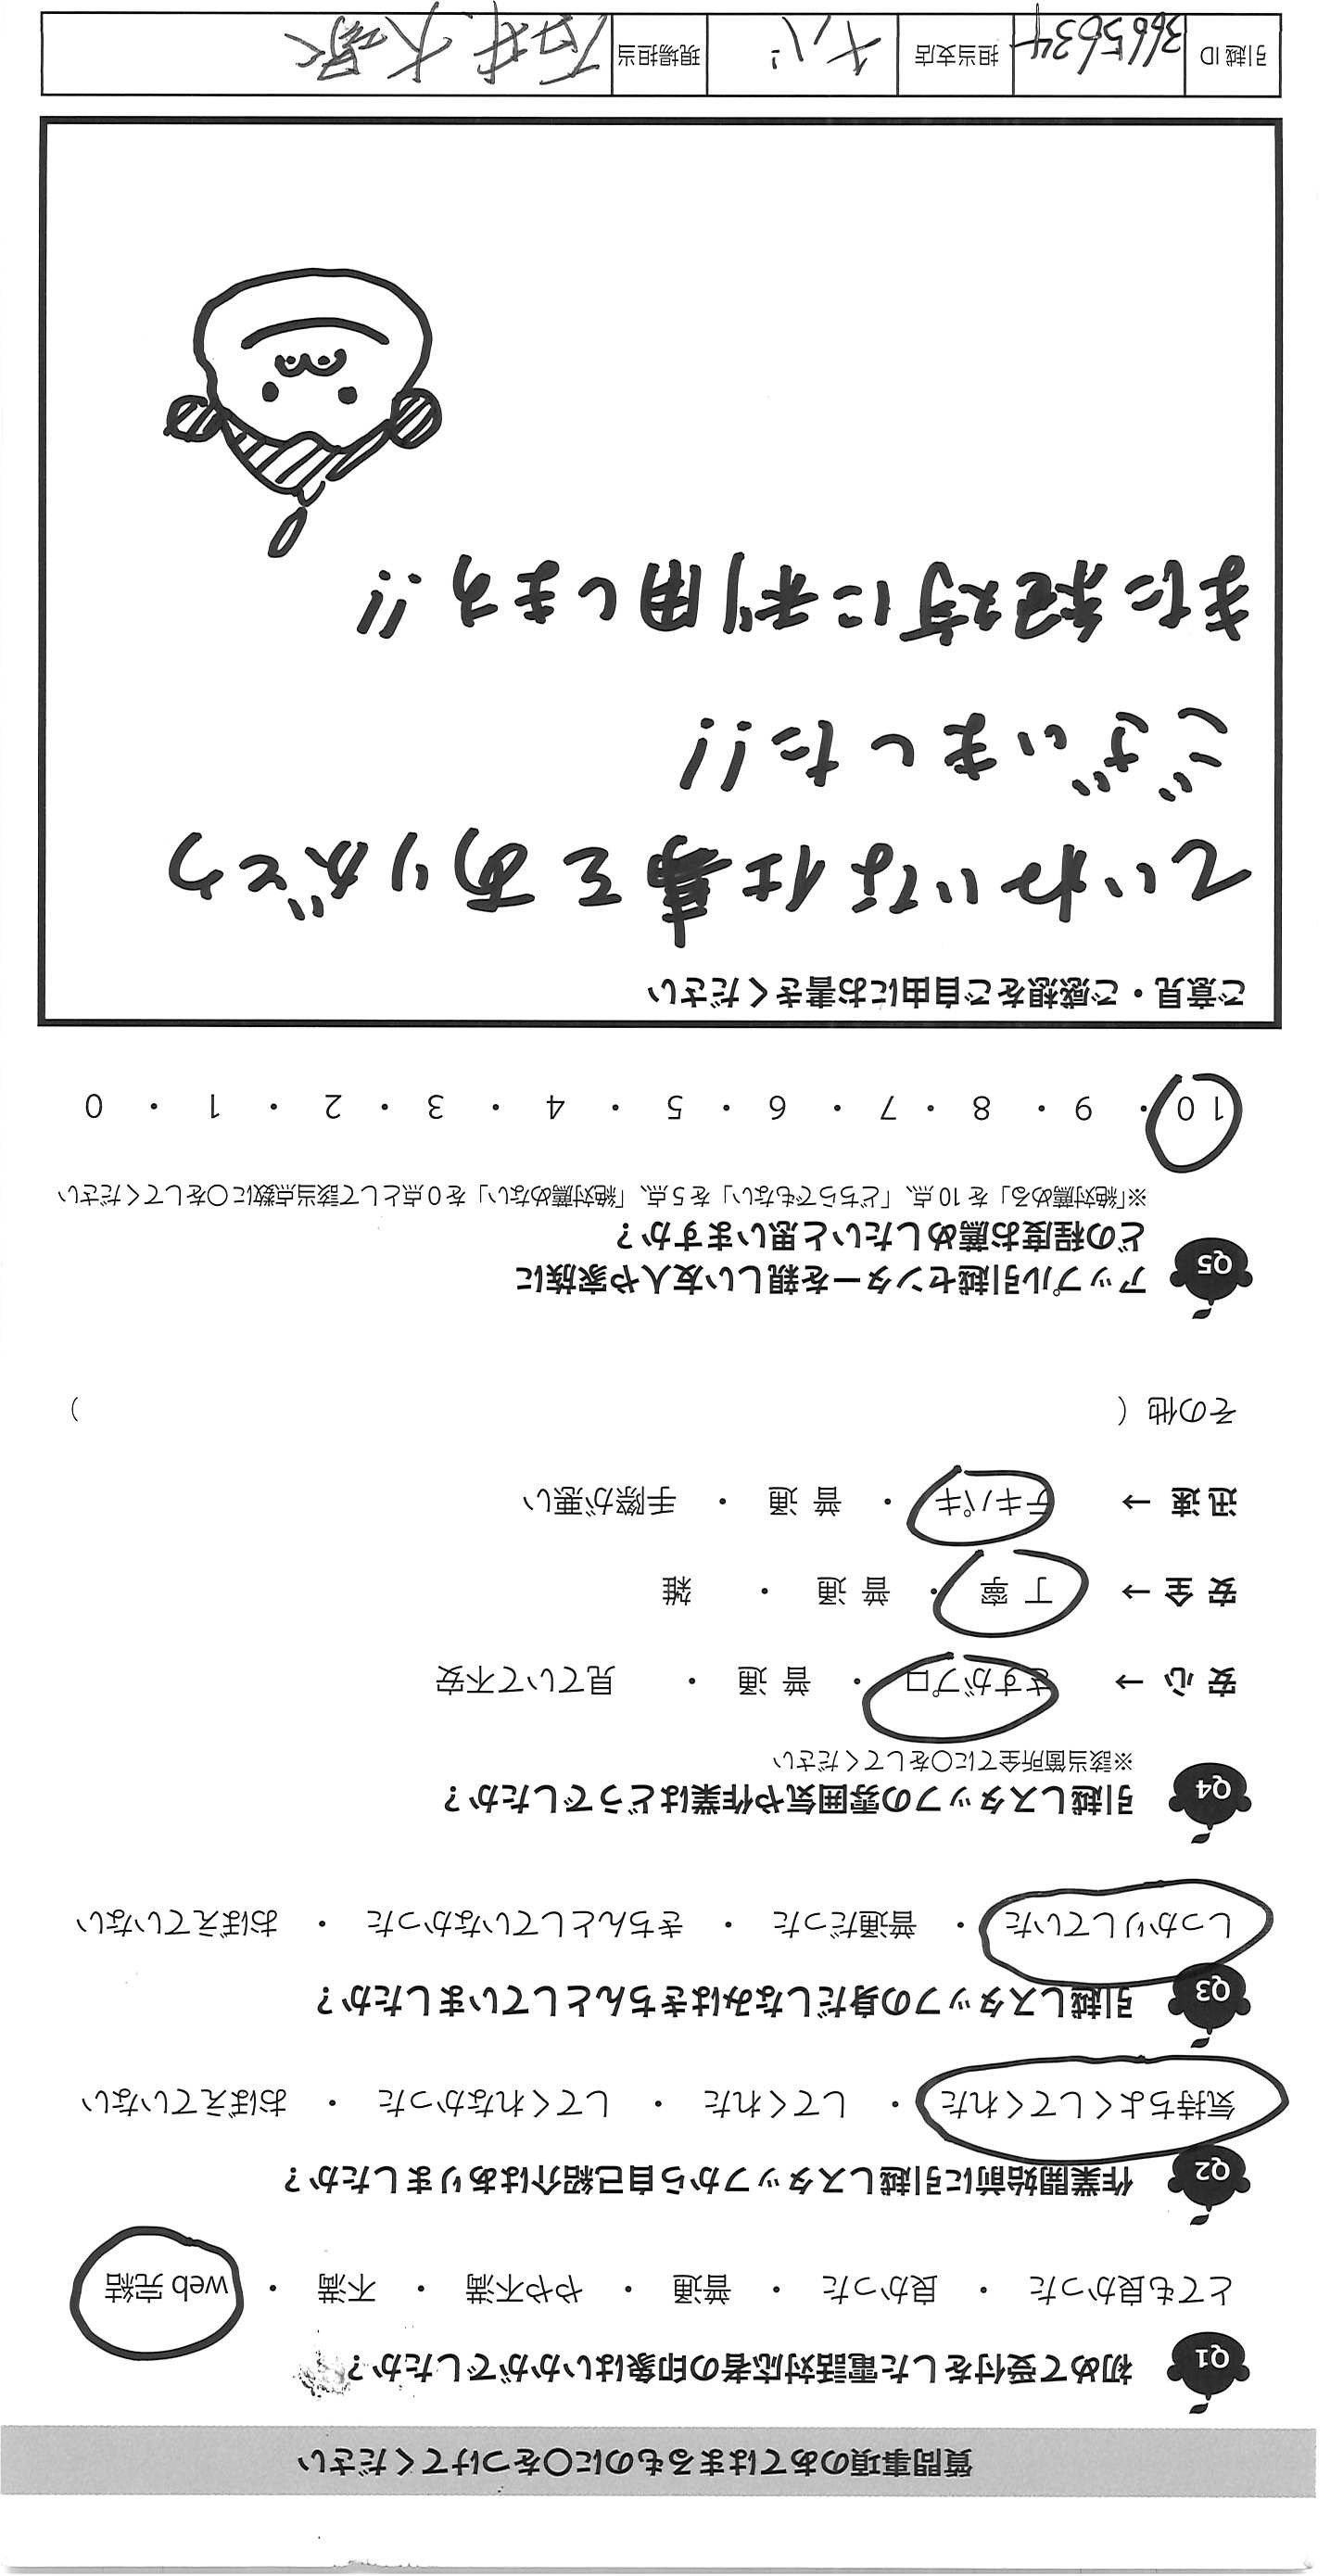 質問事項のあてはまるものに○をつけてください
Q1 初めて受付をした電話対応者の印象はいかがでしたか？
とても良かった ・ 良かった ・ 普通 ・ やや不満 ・ 不満 ・ web 完結
Q2 作業開始前に引越しスタッフから自己紹介はありましたか？
気持ちよくしてくれた ・ してくれた ・ してくれなかった ・ おぼえていない
Q3 引越しスタッフの身だしなみはきちんとしていましたか？
しっかりしていた ・ 普通だった ・ きちんとしていなかった ・ おぼえていない
Q4 引越しスタッフの雰囲気や作業はどうでしたか？
※該当箇所全てに○をしてください
安 心 → さすがプロ ・ 普 通 ・ 見ていて不安
安 全 → 丁 寧 ・ 普 通 ・ 雑
迅 速 → テキパキ ・ 普 通 ・ 手際が悪い
その他（ ）
Q5 アップル引越センターを親しい友人や家族に
どの程度お薦めしたいと思いますか？
※「絶対薦める」を 10 点、「どちらでもない」を 5 点、「絶対薦めない」を 0 点として該当点数に○をしてください
10 ・ 9 ・ 8 ・ 7 ・ 6 ・ 5 ・ 4 ・ 3 ・ 2 ・ 1 ・ 0
ご意見・ご感想をご自由にお書きください
ていねいな仕事をありがとう
ございました!!
また絶対に利用します!!
引越 ID 3665634 担当支店 チバ 現場担当 石井